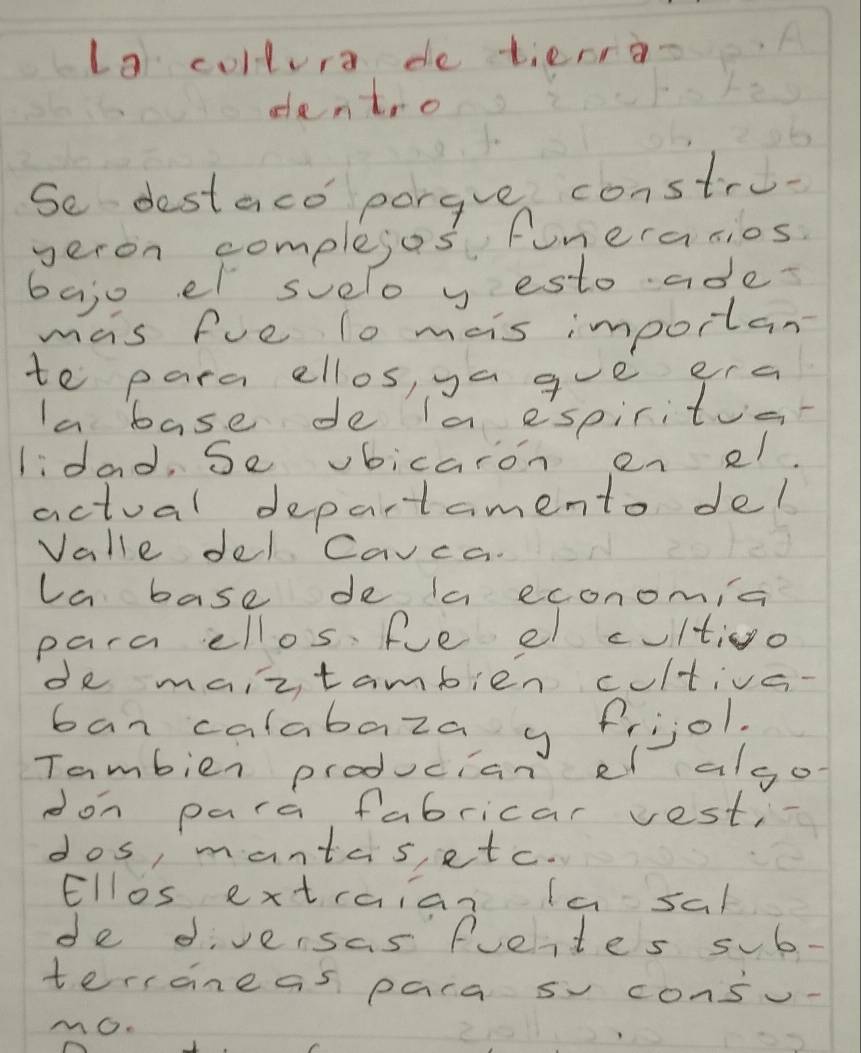 La cultura de tierra-
dentro
Se destacó porque constru-
yerón complejos funerarios
bajo el suelo y esto ade-
más fue lo más importan-
te para ellos, ya que era
la base de la espiritua-
lidad. Se ubicarón en el
actual departamento del
Valle del Cauca.
La base de la economía
para ellos fue el cultivo
de maíz, también cultiva-
ban calabaza y frijol.
Tambien producían el algo-
dón para fabricar vesti-
dos, mantas, etc.
Ellos extraían la sal
de diversas fuentes sub-
terráneas para su consu-
mo.